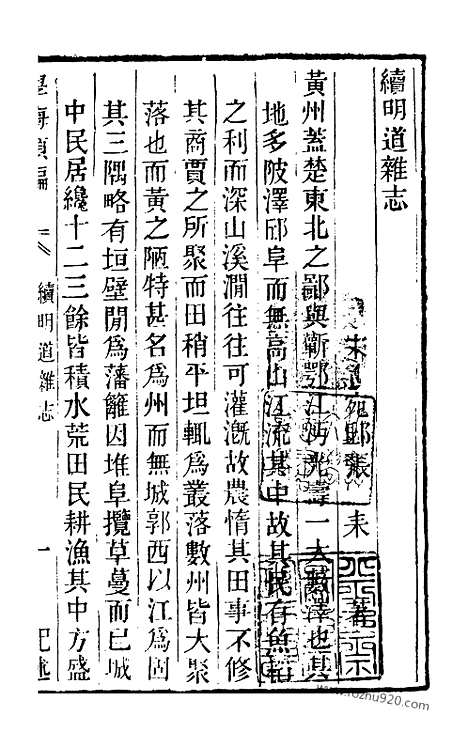 續明道雜志
宋 宛邱張 耒 著
黃州蓋楚東北之鄙與蘄鄂江沔光壽一大藪澤也其
地多陂澤邱阜而無高山江流其中故其民有魚稻
之利而深山溪澗往往可灌漑故農惰其田事不修
其商賈之所聚而田稍平坦輒爲叢落數州皆大聚
落也而黃之陋特甚名爲州而無城郭西以江爲固
其三隅略有垣壁閒爲藩籬因堆阜攬草蔓而已城
中民居纔十二三餘皆積水荒田民耕漁其中方盛
學海類編 續明道雜志 一 記述
www.fozhu920.com